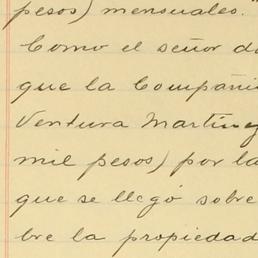 pesos) mensuales.
Como el señor d
que la Compañi
Ventura Martínez
mil pesos) por la
que se llegó sobre
bre la propiedad